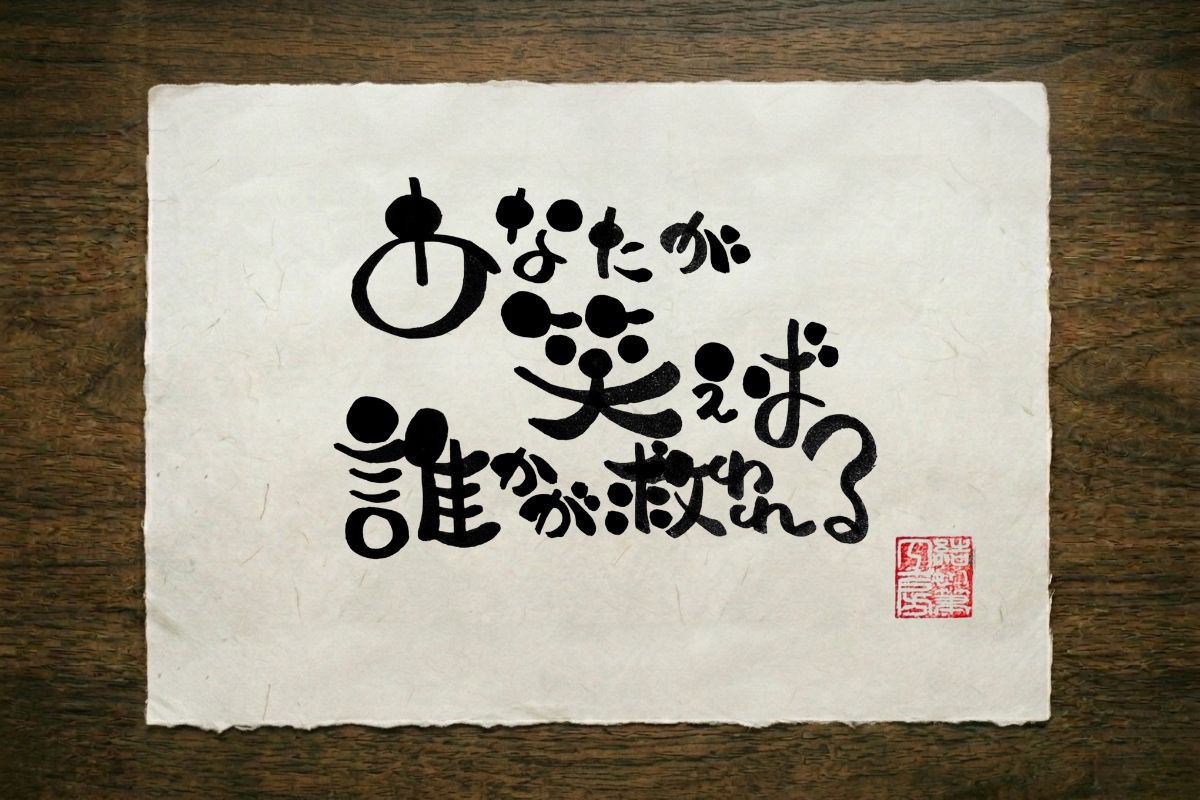 あなたが
笑えば
誰かが救われる